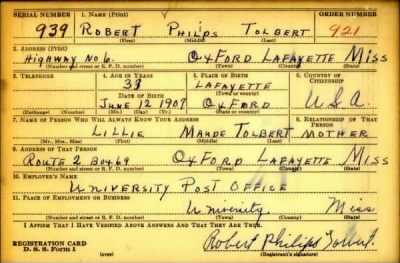 SERIAL NUMBER 1. NAME (Print) ORDER NUMBER
939 ROBERT PHILPS TOLBERT 921
(First) (Middle) (Last)
2. ADDRESS (Print)
HIGHWAY NO 6. OXFORD LAFAYETTE MISS
(Number and street or R. F. D. number) (Town) (County) (State)
3. TELEPHONE 4. AGE IN YEARS 5. PLACE OF BIRTH 6. COUNTRY OF CITIZENSHIP
33 LAFAYETTE
DATE OF BIRTH (Town or county)
JUNE 12 1907 OXFORD U.S.A.
(Exchange) (Number) (Mo.) (Day) (Yr.) (State or country)
7. NAME OF PERSON WHO WILL ALWAYS KNOW YOUR ADDRESS 8. RELATIONSHIP OF THAT PERSON
LILLIE MAUDE TOLBERT MOTHER
(Mr., Mrs., Miss) (First) (Middle) (Last)
9. ADDRESS OF THAT PERSON
ROUTE 2 BOX 69 OXFORD LAFAYETTE MISS
(Number and street or R. F. D. number) (Town) (County) (State)
10. EMPLOYER'S NAME
UNIVERSITY POST OFFICE
11. PLACE OF EMPLOYMENT OR BUSINESS
University. Miss
(Number and street or R. F. D. number) (Town) (County) (State)
I AFFIRM THAT I HAVE VERIFIED ABOVE ANSWERS AND THAT THEY ARE TRUE.
REGISTRATION CARD Robert Philips Tolbert.
D. S. S. Form 1 (over) (Registrant's signature)